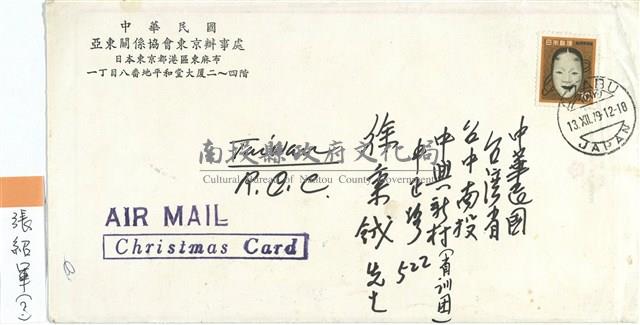 中華民國
亞東關係協會東京辦事處
日本東京都港區東麻布
一丁目八番地平和堂大厦二～四階
日本郵便
AZABU
13.XII.79.12-18
JAPAN
中華民國
台灣省
台中南投
中興新村(省訓团)
中正路 522
徐秉鉞先生
Taiwan
R.O.C.
南投縣政府文化局
Cultural Bureau of Nantou County Government
AIR MAIL
Christmas Card
張紹軍(?)